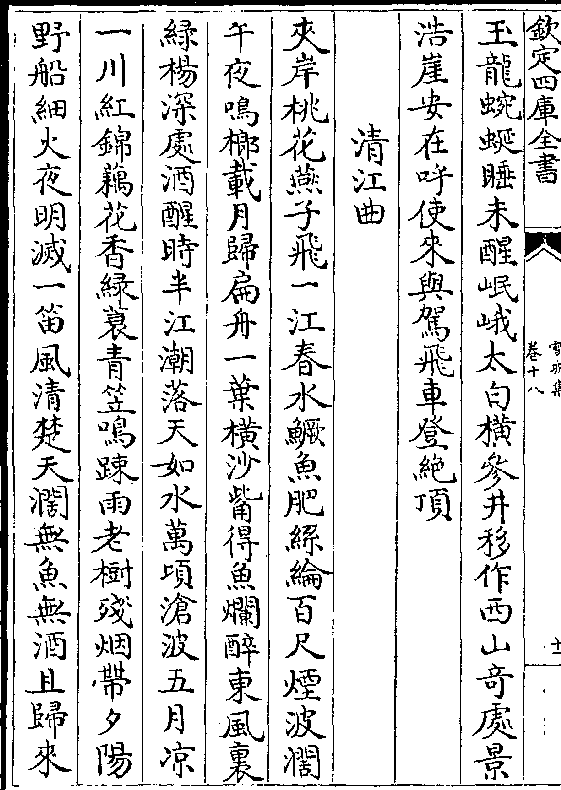 欽定四庫全書
卷十八
玉龍蜿蜒睡未醒岷峨太白橫參井移作西山奇處景
浩崖安在呼使來與駕飛車登絶頂
清江曲
夾岸桃花燕子飛一江春水鱖魚肥絲綸百尺煙波濶
午夜鳴榔載月歸扁舟一葉橫沙觜得魚爛醉東風裏
綠楊深處酒醒時半江潮落天如水萬頃滄波五月凉
一川紅錦藕花香綠蓑青笠鳴踈雨老樹殘烟帶夕陽
野船細火夜明滅一笛風清楚天濶無魚無酒且歸來